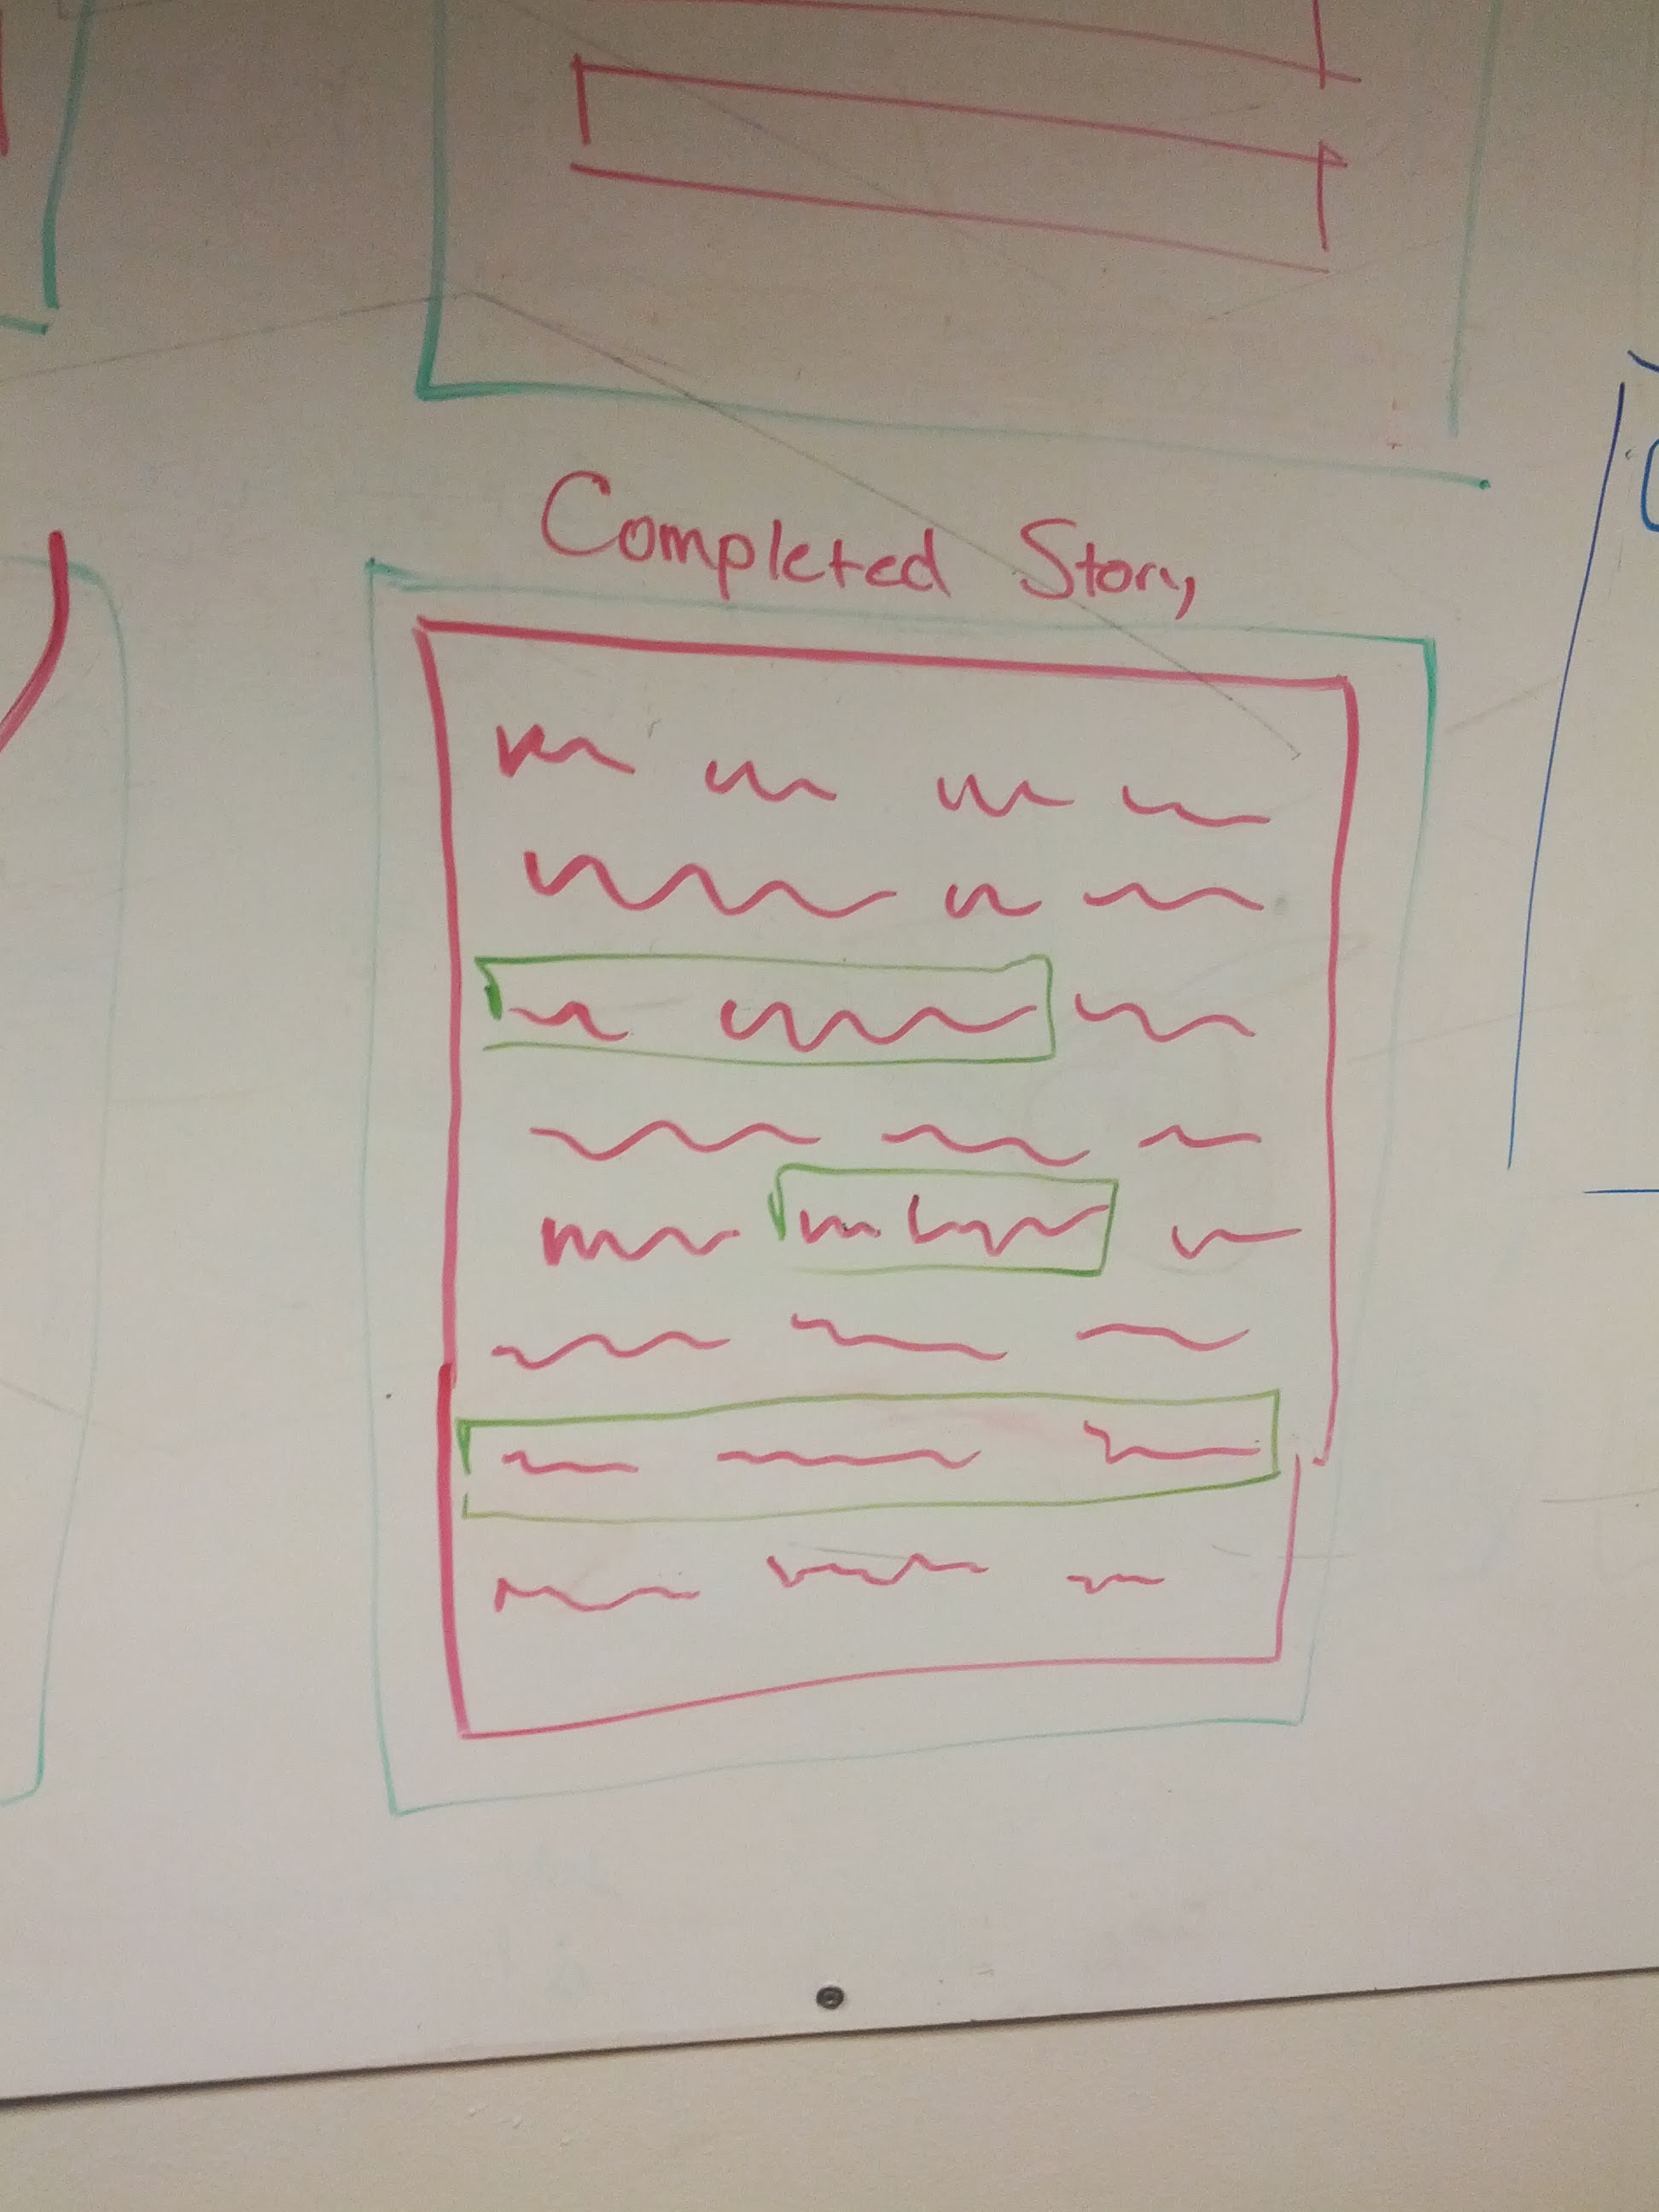 Completed Story